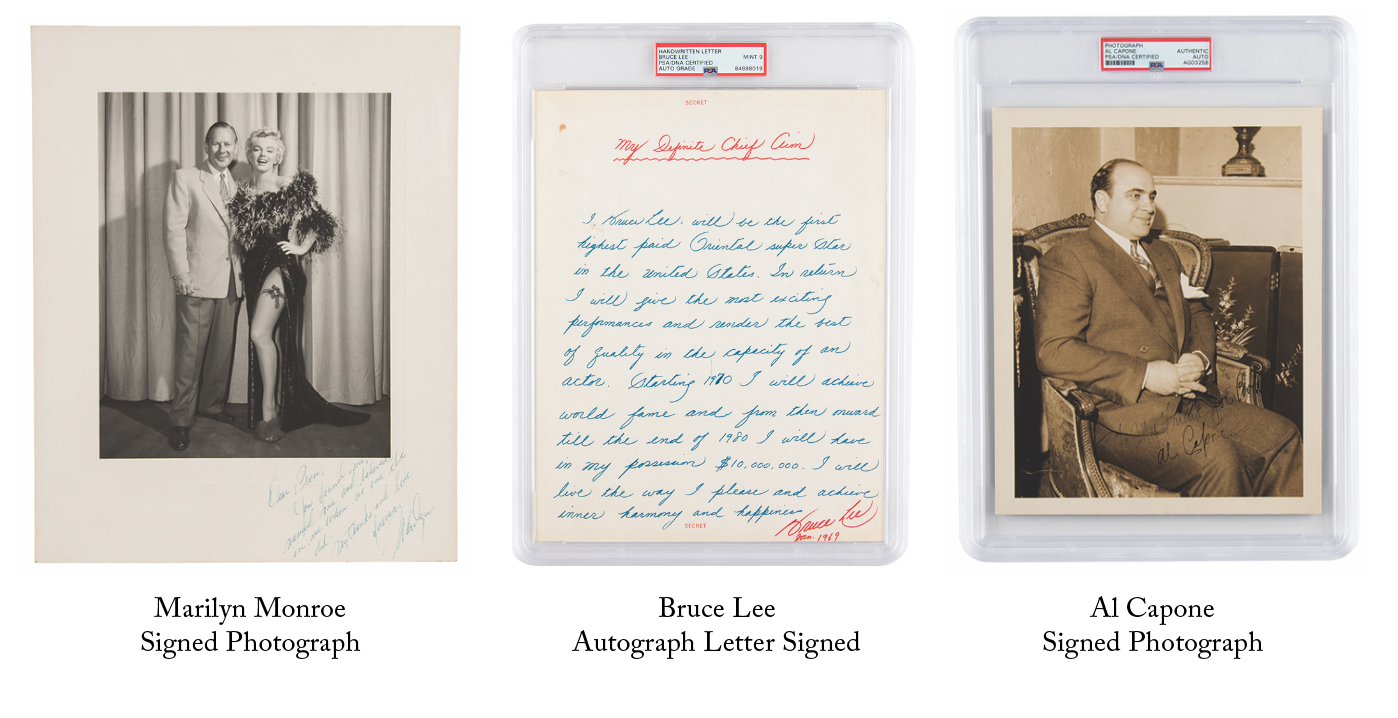 HANDWRITTEN LETTER
BRUCE LEE MINT 9
PSA/DNA CERTIFIED
AUTO GRADE PSA 84698019
SECRET
My Definite Chief Aim
I, Bruce Lee, will be the first
highest paid Oriental super star
in the united States. In return
I will give the most exciting
performances and render the best
of quality in the capacity of an
actor. Starting 1970 I will achieve
world fame and from then onward
till the end of 1980 I will have
in my possession $10,000,000. I will
live the way I please and achieve
inner harmony and happiness
SECRET
Bruce Lee
Jan. 1969
PHOTOGRAPH
AL CAPONE AUTHENTIC
PSA/DNA CERTIFIED AUTO
PSA AG03258
Al Capone
Dear
my thanks and love
Marilyn
Marilyn Monroe
Signed Photograph
Bruce Lee
Autograph Letter Signed
Al Capone
Signed Photograph